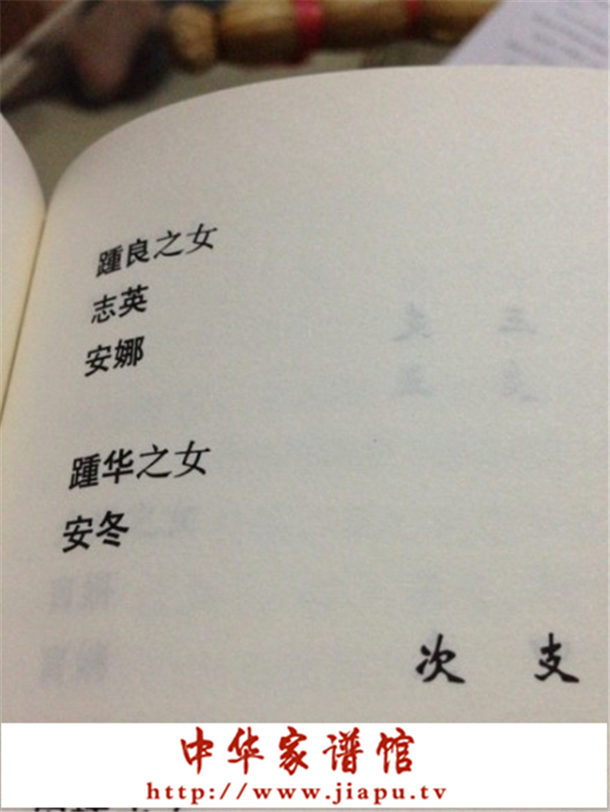 踵良之女
志英
安娜
踵华之女
安冬
次支
中华家谱馆
http://www.jiapu.tv